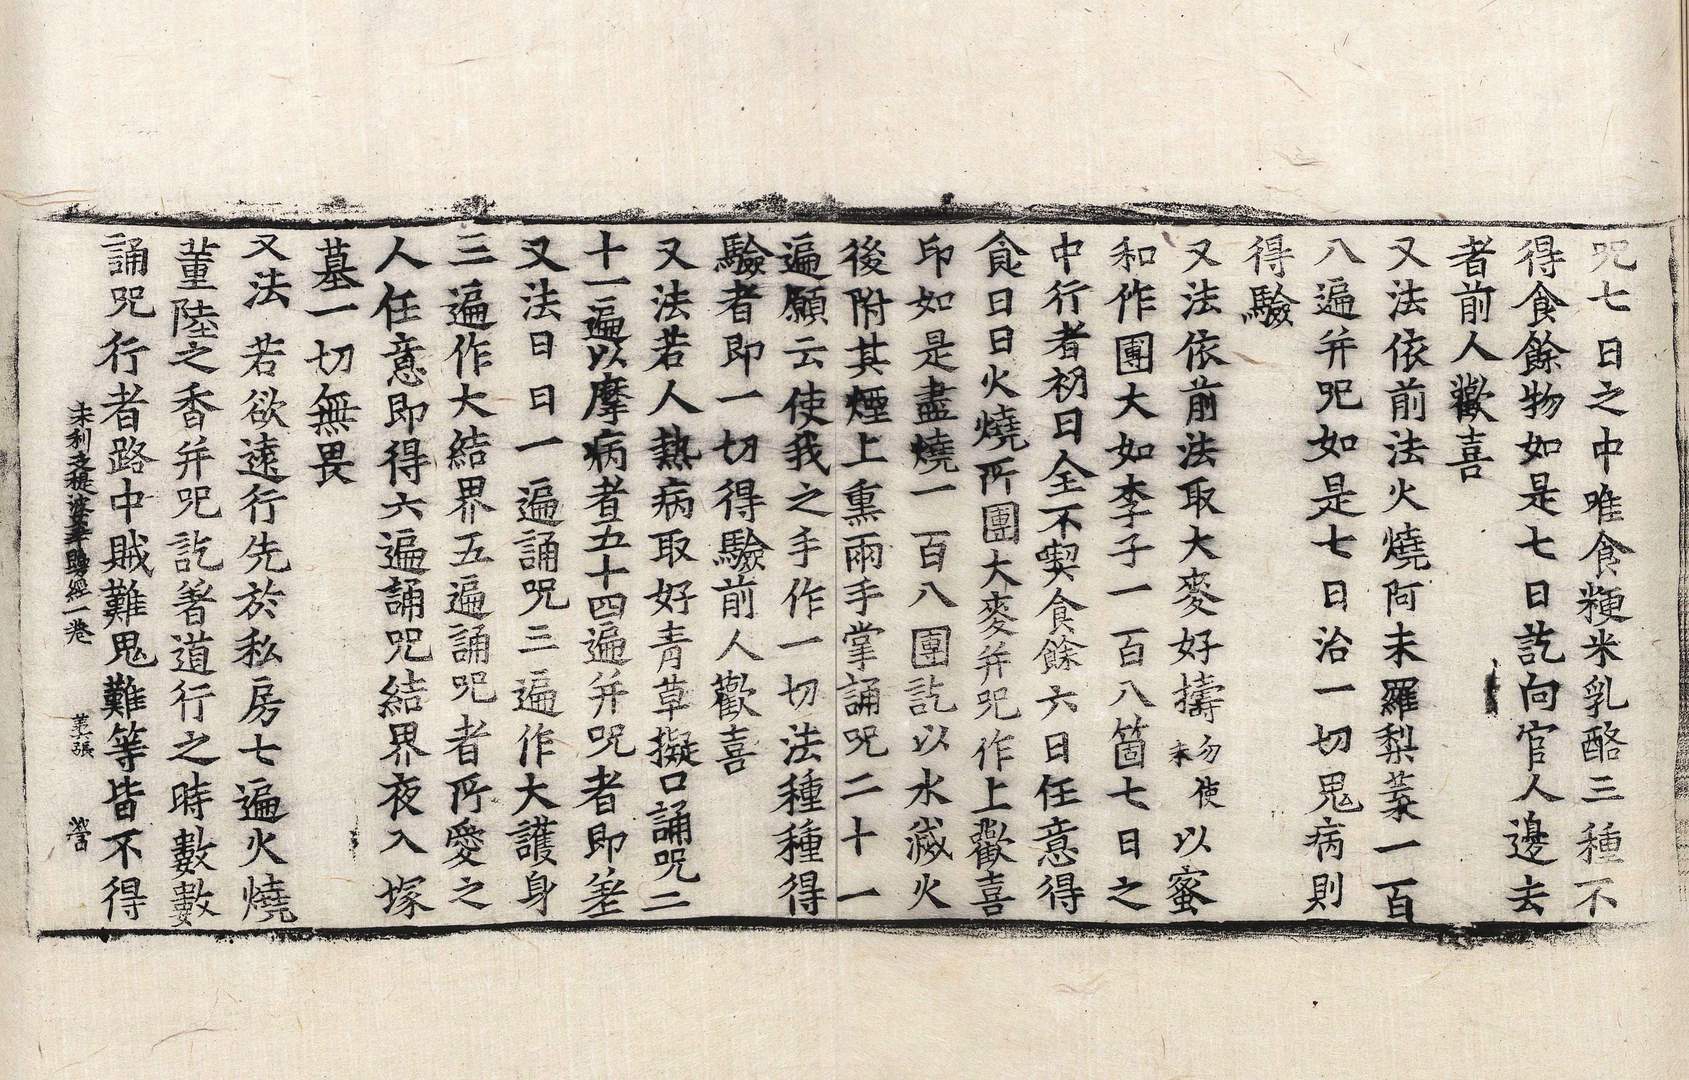 呪七日之中唯食粳米乳酪三種不
得食餘物如是七日訖向官人邊去
者前人歡喜
又法依前法火燒阿末羅梨葉一百
八遍并呪如是七日治一切鬼病則
得驗
又法依前法取大麥好擣勿使末以蜜
和作團大如李子一百八箇七日之
中行者初日全不喫食餘六日任意得
食日日火燒所團大麥并呪作上歡喜
印如是盡燒一百八團訖以水滅火
後附其煙上熏兩手掌誦呪二十一
遍願云使我之手作一切法種種得
驗者即一切得驗前人歡喜
又法若人熱病取好青草擬口誦呪二
十一遍以摩病者五十四遍并呪者即差
又法日日一遍誦呪三遍作大護身
三遍作大結界五遍誦呪者所愛之
人任意即得六遍誦呪結界夜入塚
墓一切無畏
又法 若欲速行先於私房七遍火燒
薰陸之香并呪訖著道行之時數數
誦呪行者路中賊難鬼難等皆不得
末利支提婆華鬘經一卷 張